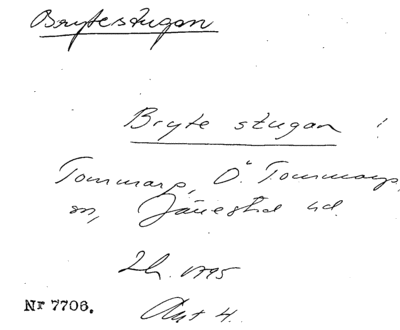 Brytestugan
Bryte stugan !
Tommarp, Ö. Tommarps
sn, Järrestad hd.
Lh. 1775
Akt 4.
Nr 7706.